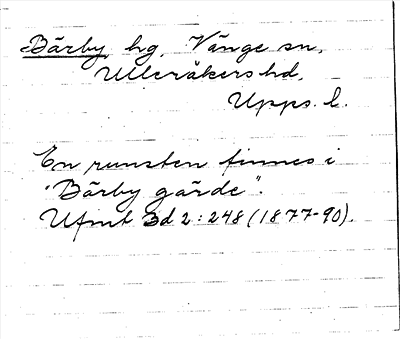 Bärby, hg, Vänge sn,
Ulleråkers hd,
Upps. l.
En runsten finnes i
"Bärby gärde".
Ufmt Bd 2:248 (1877-90).